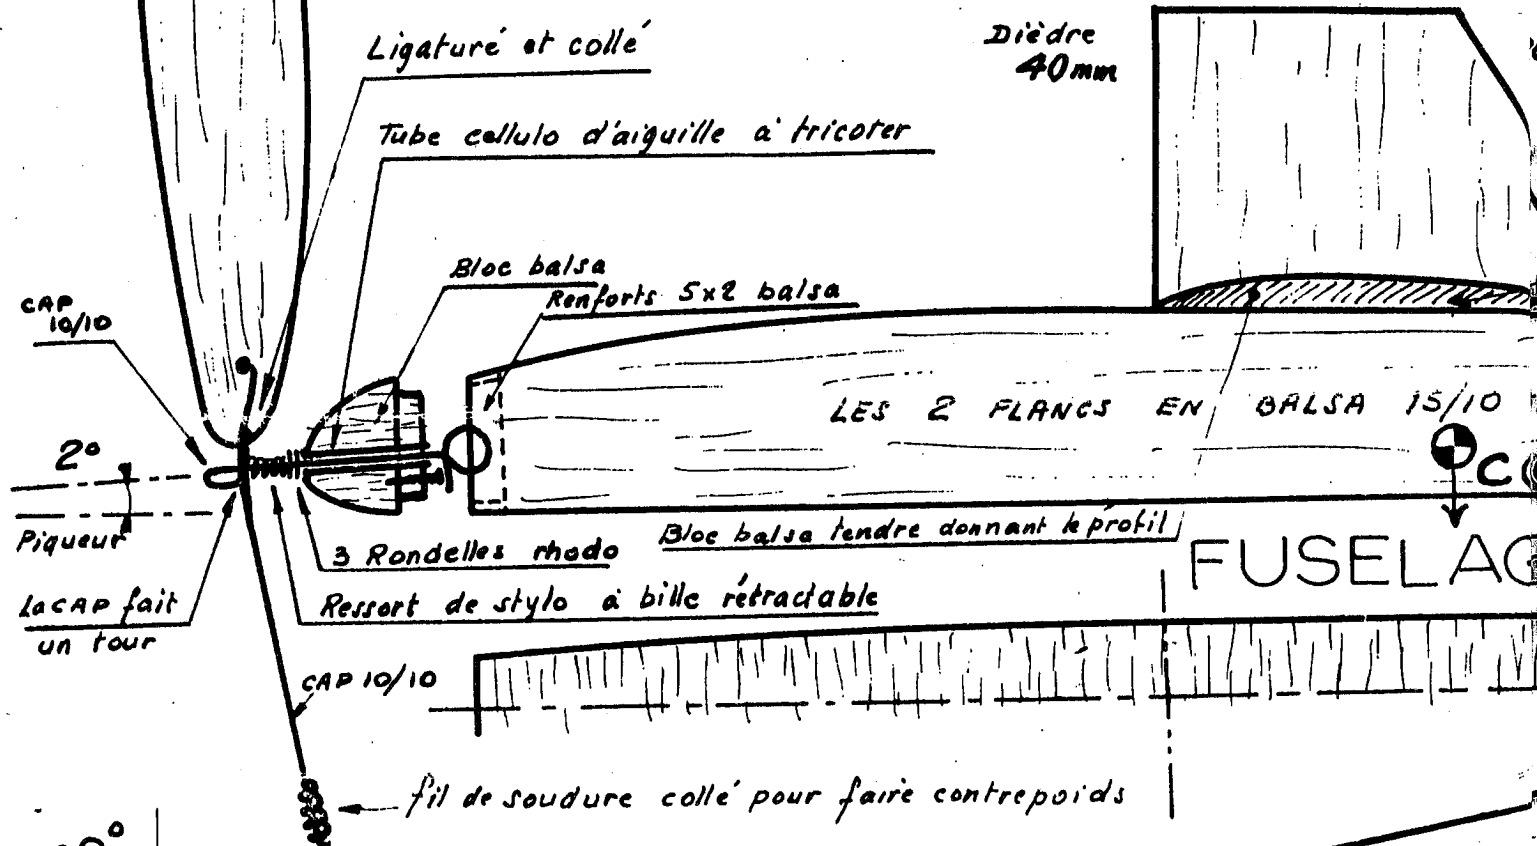 Ligaturé et collé
Dièdre
40mm
Tube cellulo d'aiguille à tricoter
Bloc balsa
Renforts 5x2 balsa
CAP
10/10
LES 2 FLANCS EN BALSA 15/10
2°
Piqueur
3 Rondelles rhodo
Bloc balsa tendre donnant le profil
FUSELAG
La CAP fait
un tour
Ressort de stylo à bille rétractable
CAP 10/10
fil de soudure collé pour faire contrepoids